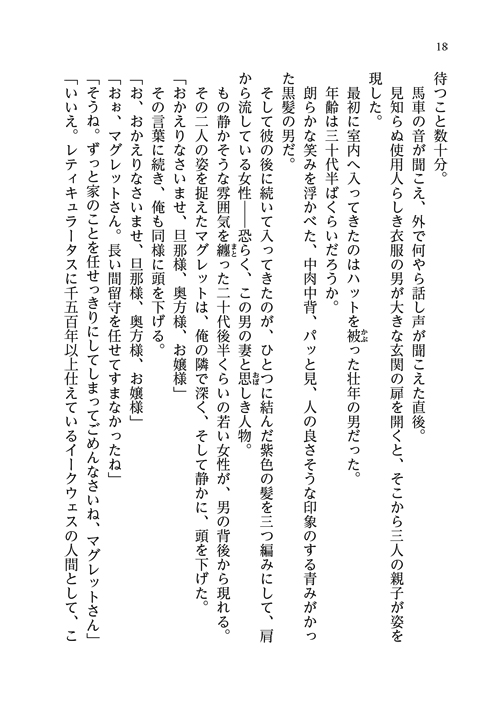 18
待つこと数十分。
　馬車の音が聞こえ、外で何やら話し声が聞こえた直後。
　見知らぬ使用人らしき衣服の男が大きな玄関の扉を開くと、そこから三人の親子が姿を
現した。
　最初に室内へ入ってきたのはハットを被った壮年の男だった。
　年齢は三十代半ばくらいだろうか。
　朗らかな笑みを浮かべた、中肉中背、パッと見、人の良さそうな印象のする青みがかっ
た黒髪の男だ。
　そして彼の後に続いて入ってきたのが、ひとつに結んだ紫色の髪を三つ編みにして、肩
から流している女性――恐らく、この男の妻と思しき人物。
　もの静かそうな雰囲気を纏った二十代後半くらいの若い女性が、男の背後から現れる。
　その二人の姿を捉えたマグレットは、俺の隣で深く、そして静かに、頭を下げた。
「おかえりなさいませ、旦那様、奥方様、お嬢様」
　その言葉に続き、俺も同様に頭を下げる。
「お、おかえりなさいませ、旦那様、奥方様、お嬢様」
「おぉ、マグレットさん。長い間留守を任せてすまなかったね」
「そうね。ずっと家のことを任せっきりにしてしまってごめんなさいね、マグレットさん」
「いいえ。レティキュラータスに千五百年以上仕えているイークウェスの人間として、こ